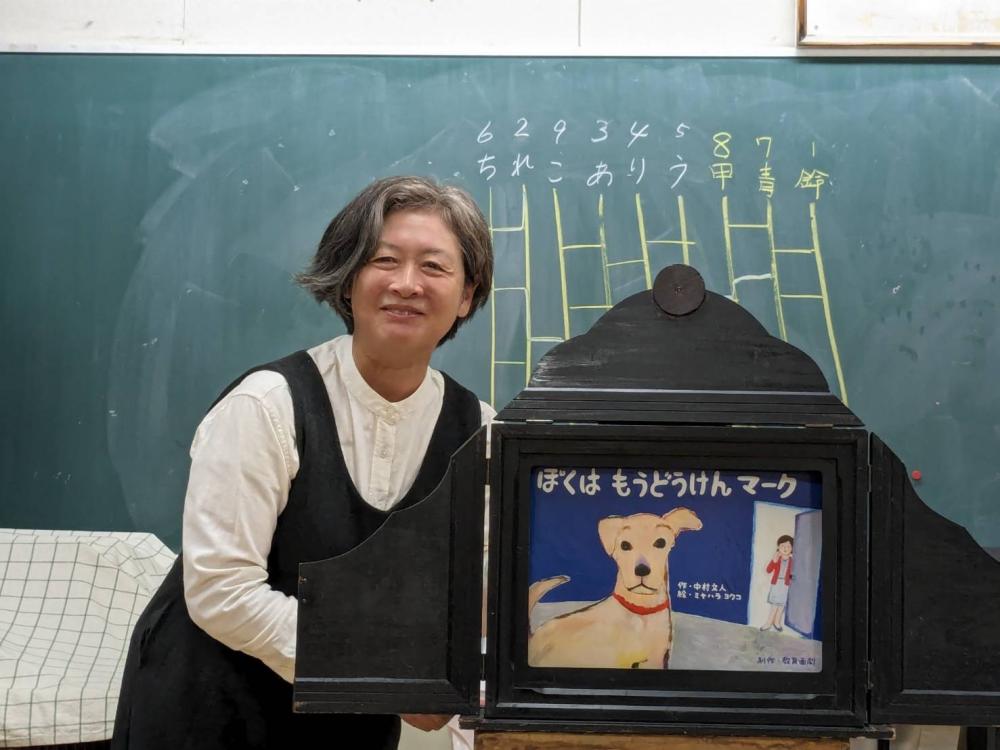 6 2 9 3 4 5 8 7 1
ち れ こ あ り う 甲 青 鈴
ぼくは もうどうけん マーク
作・中村文人
絵・ミヤハラヨウコ
制作・教育画劇